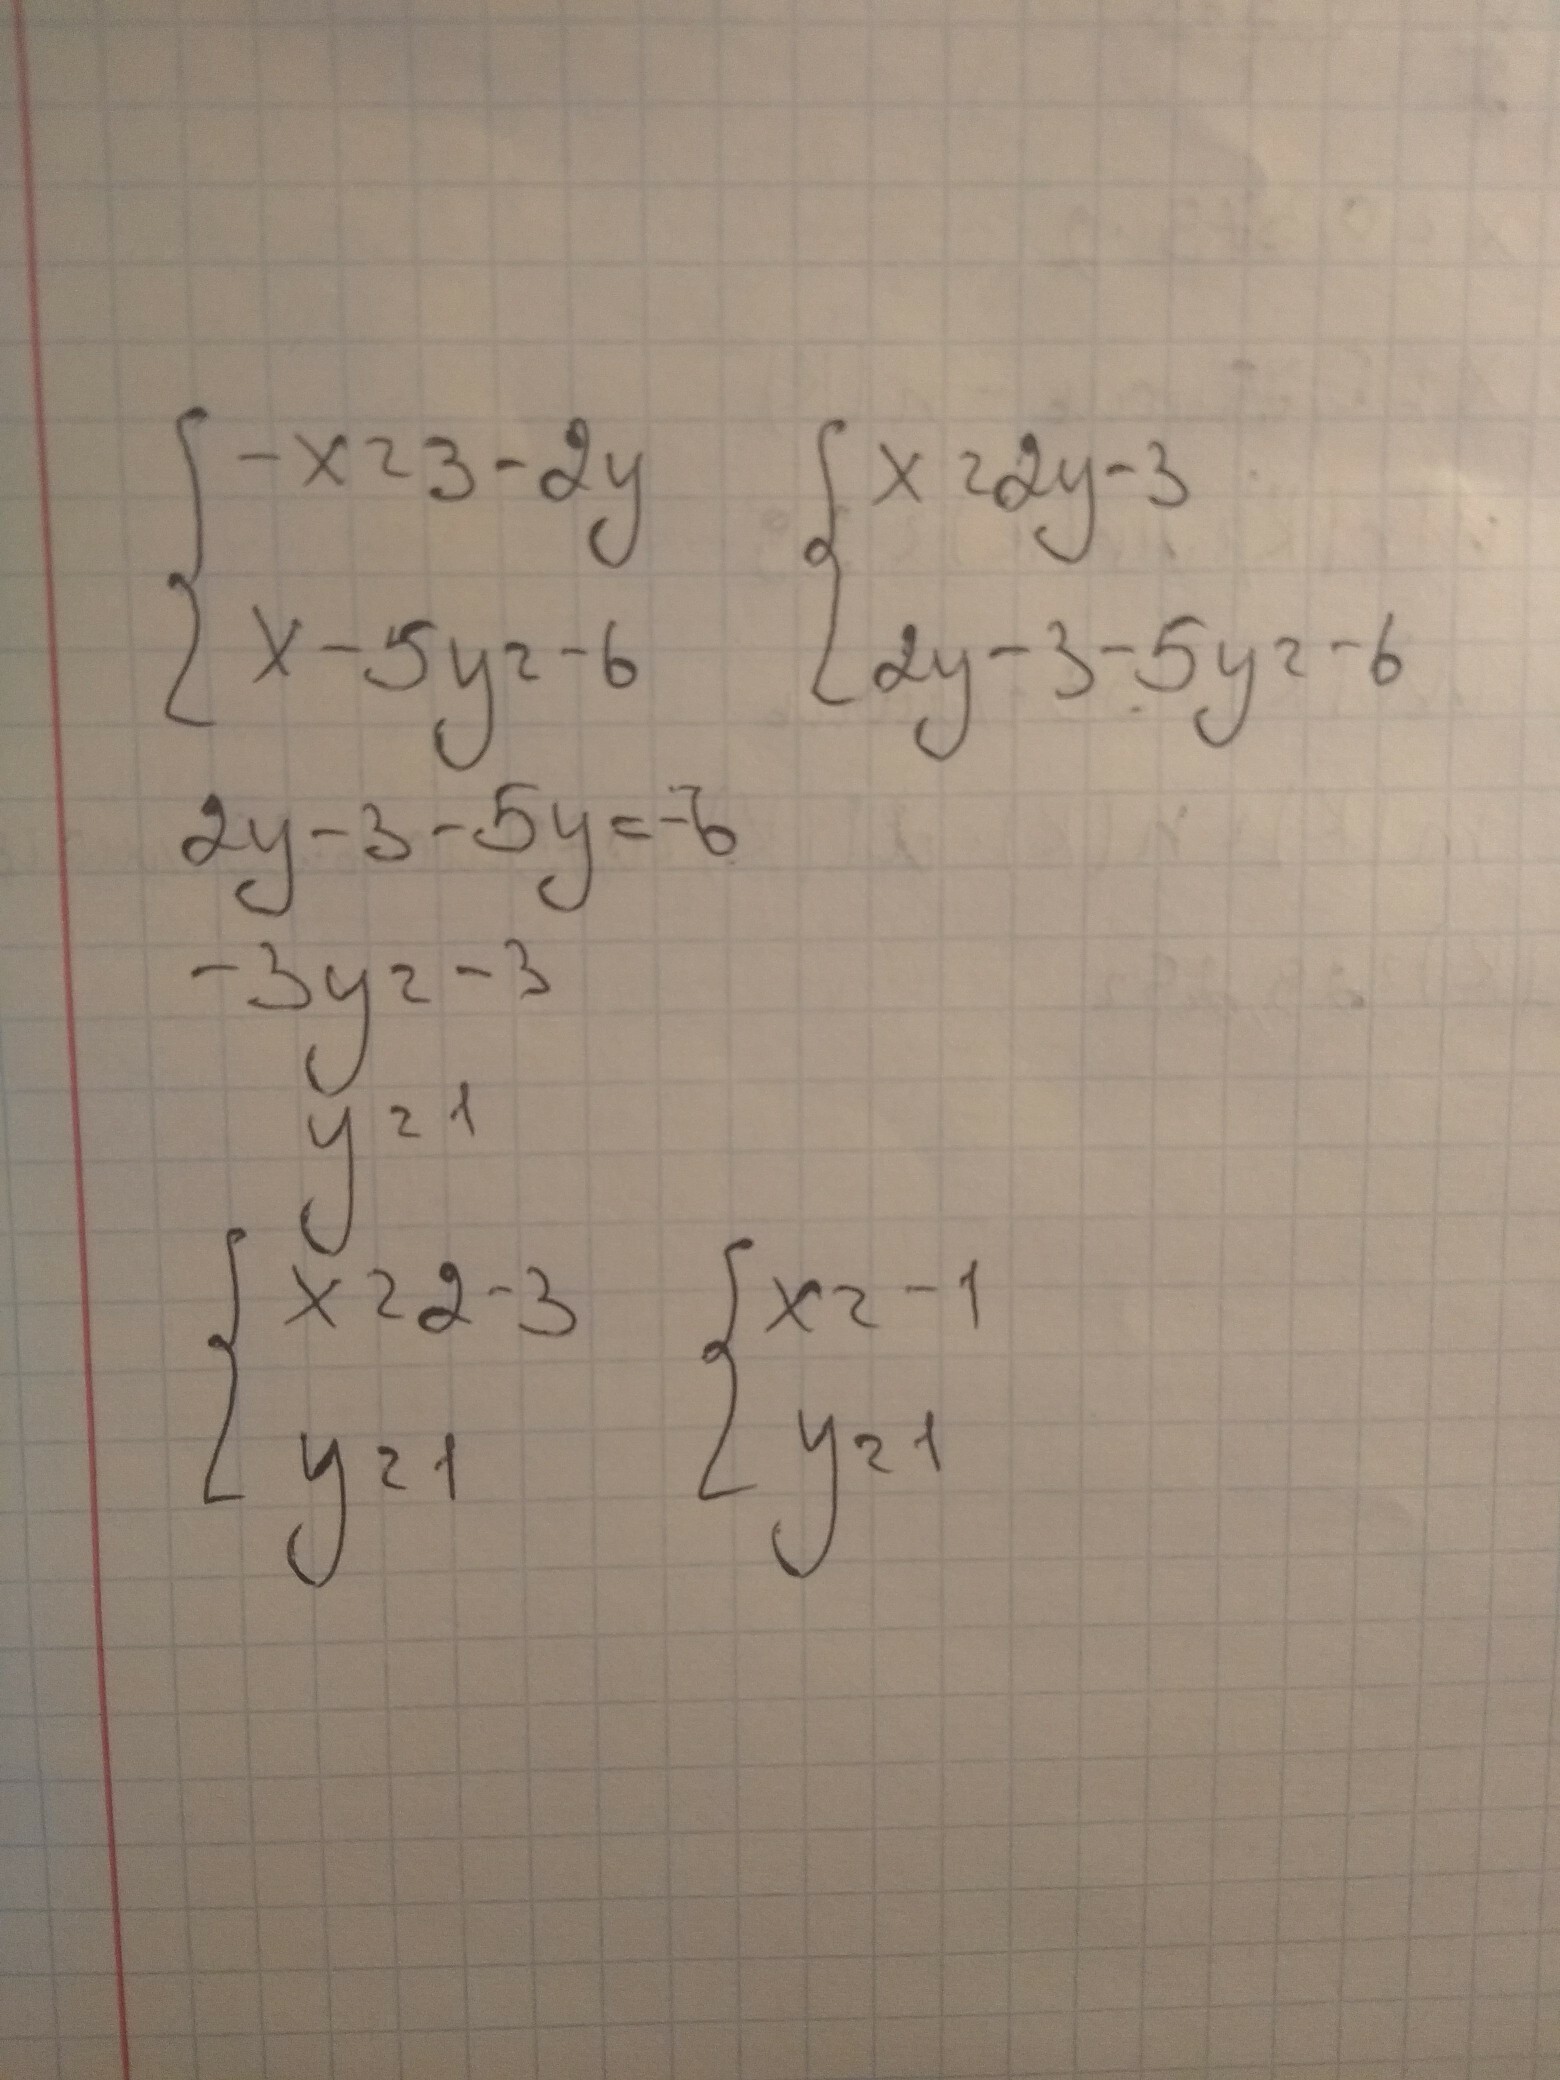 { -x = 3 - 2y { x = 2y - 3
x - 5y = -6 2y - 3 - 5y = -6
2y - 3 - 5y = -6
-3y = -3
y = 1
{ x = 2 - 3 { x = -1
y = 1 y = 1